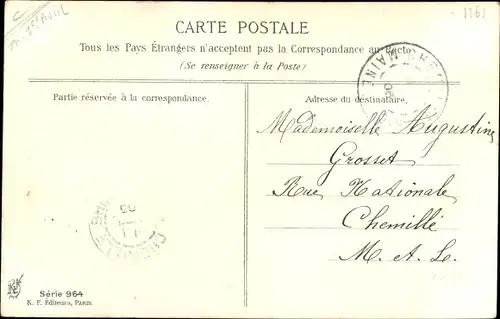 1er Avril
1961
CARTE POSTALE
Tous les Pays Étrangers n'acceptent pas la Correspondance au Recto
(Se renseigner à la Poste)
Partie réservée à la correspondance.
Adresse du destinataire.
Mademoiselle Augustine
Grosset
Rue Nationale
Chemillé
M. et L.
Série 964
K. F. Éditeurs, PARIS.